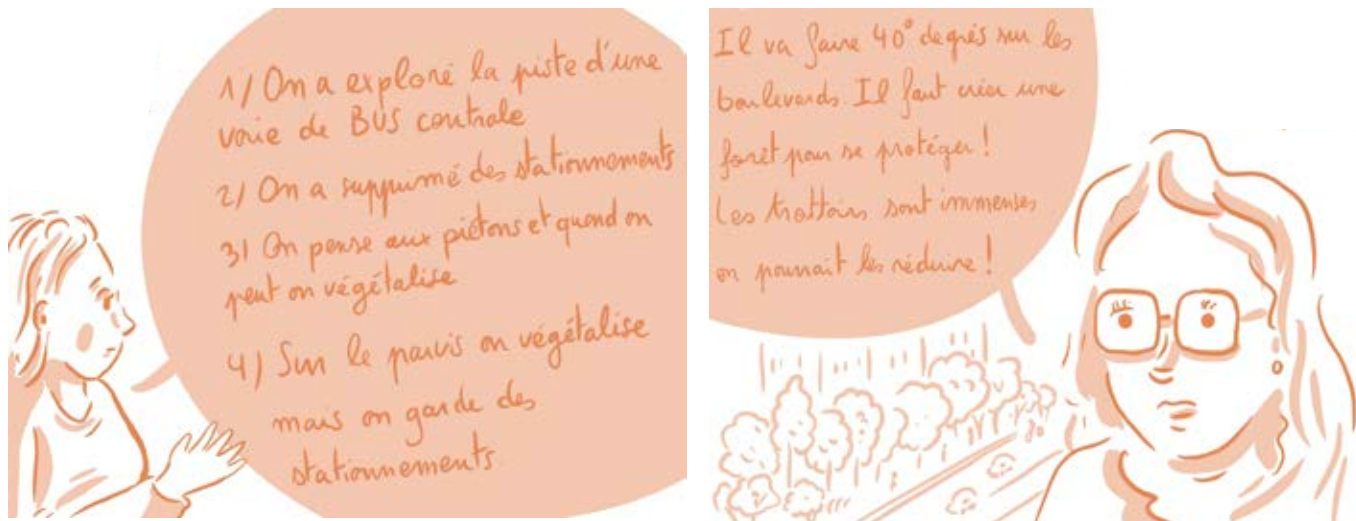 1/ On a exploré la piste d'une
voie de BUS centrale
2/ On a supprimé des stationnements
3/ On pense aux piétons et quand on
peut on végétalise
4) Sur le parvis on végétalise
mais on garde des
stationnements
Il va faire 40° degrés sur les
boulevards. Il faut créer une
forêt pour se protéger !
Les trottoirs sont immenses,
on pourrait les réduire !